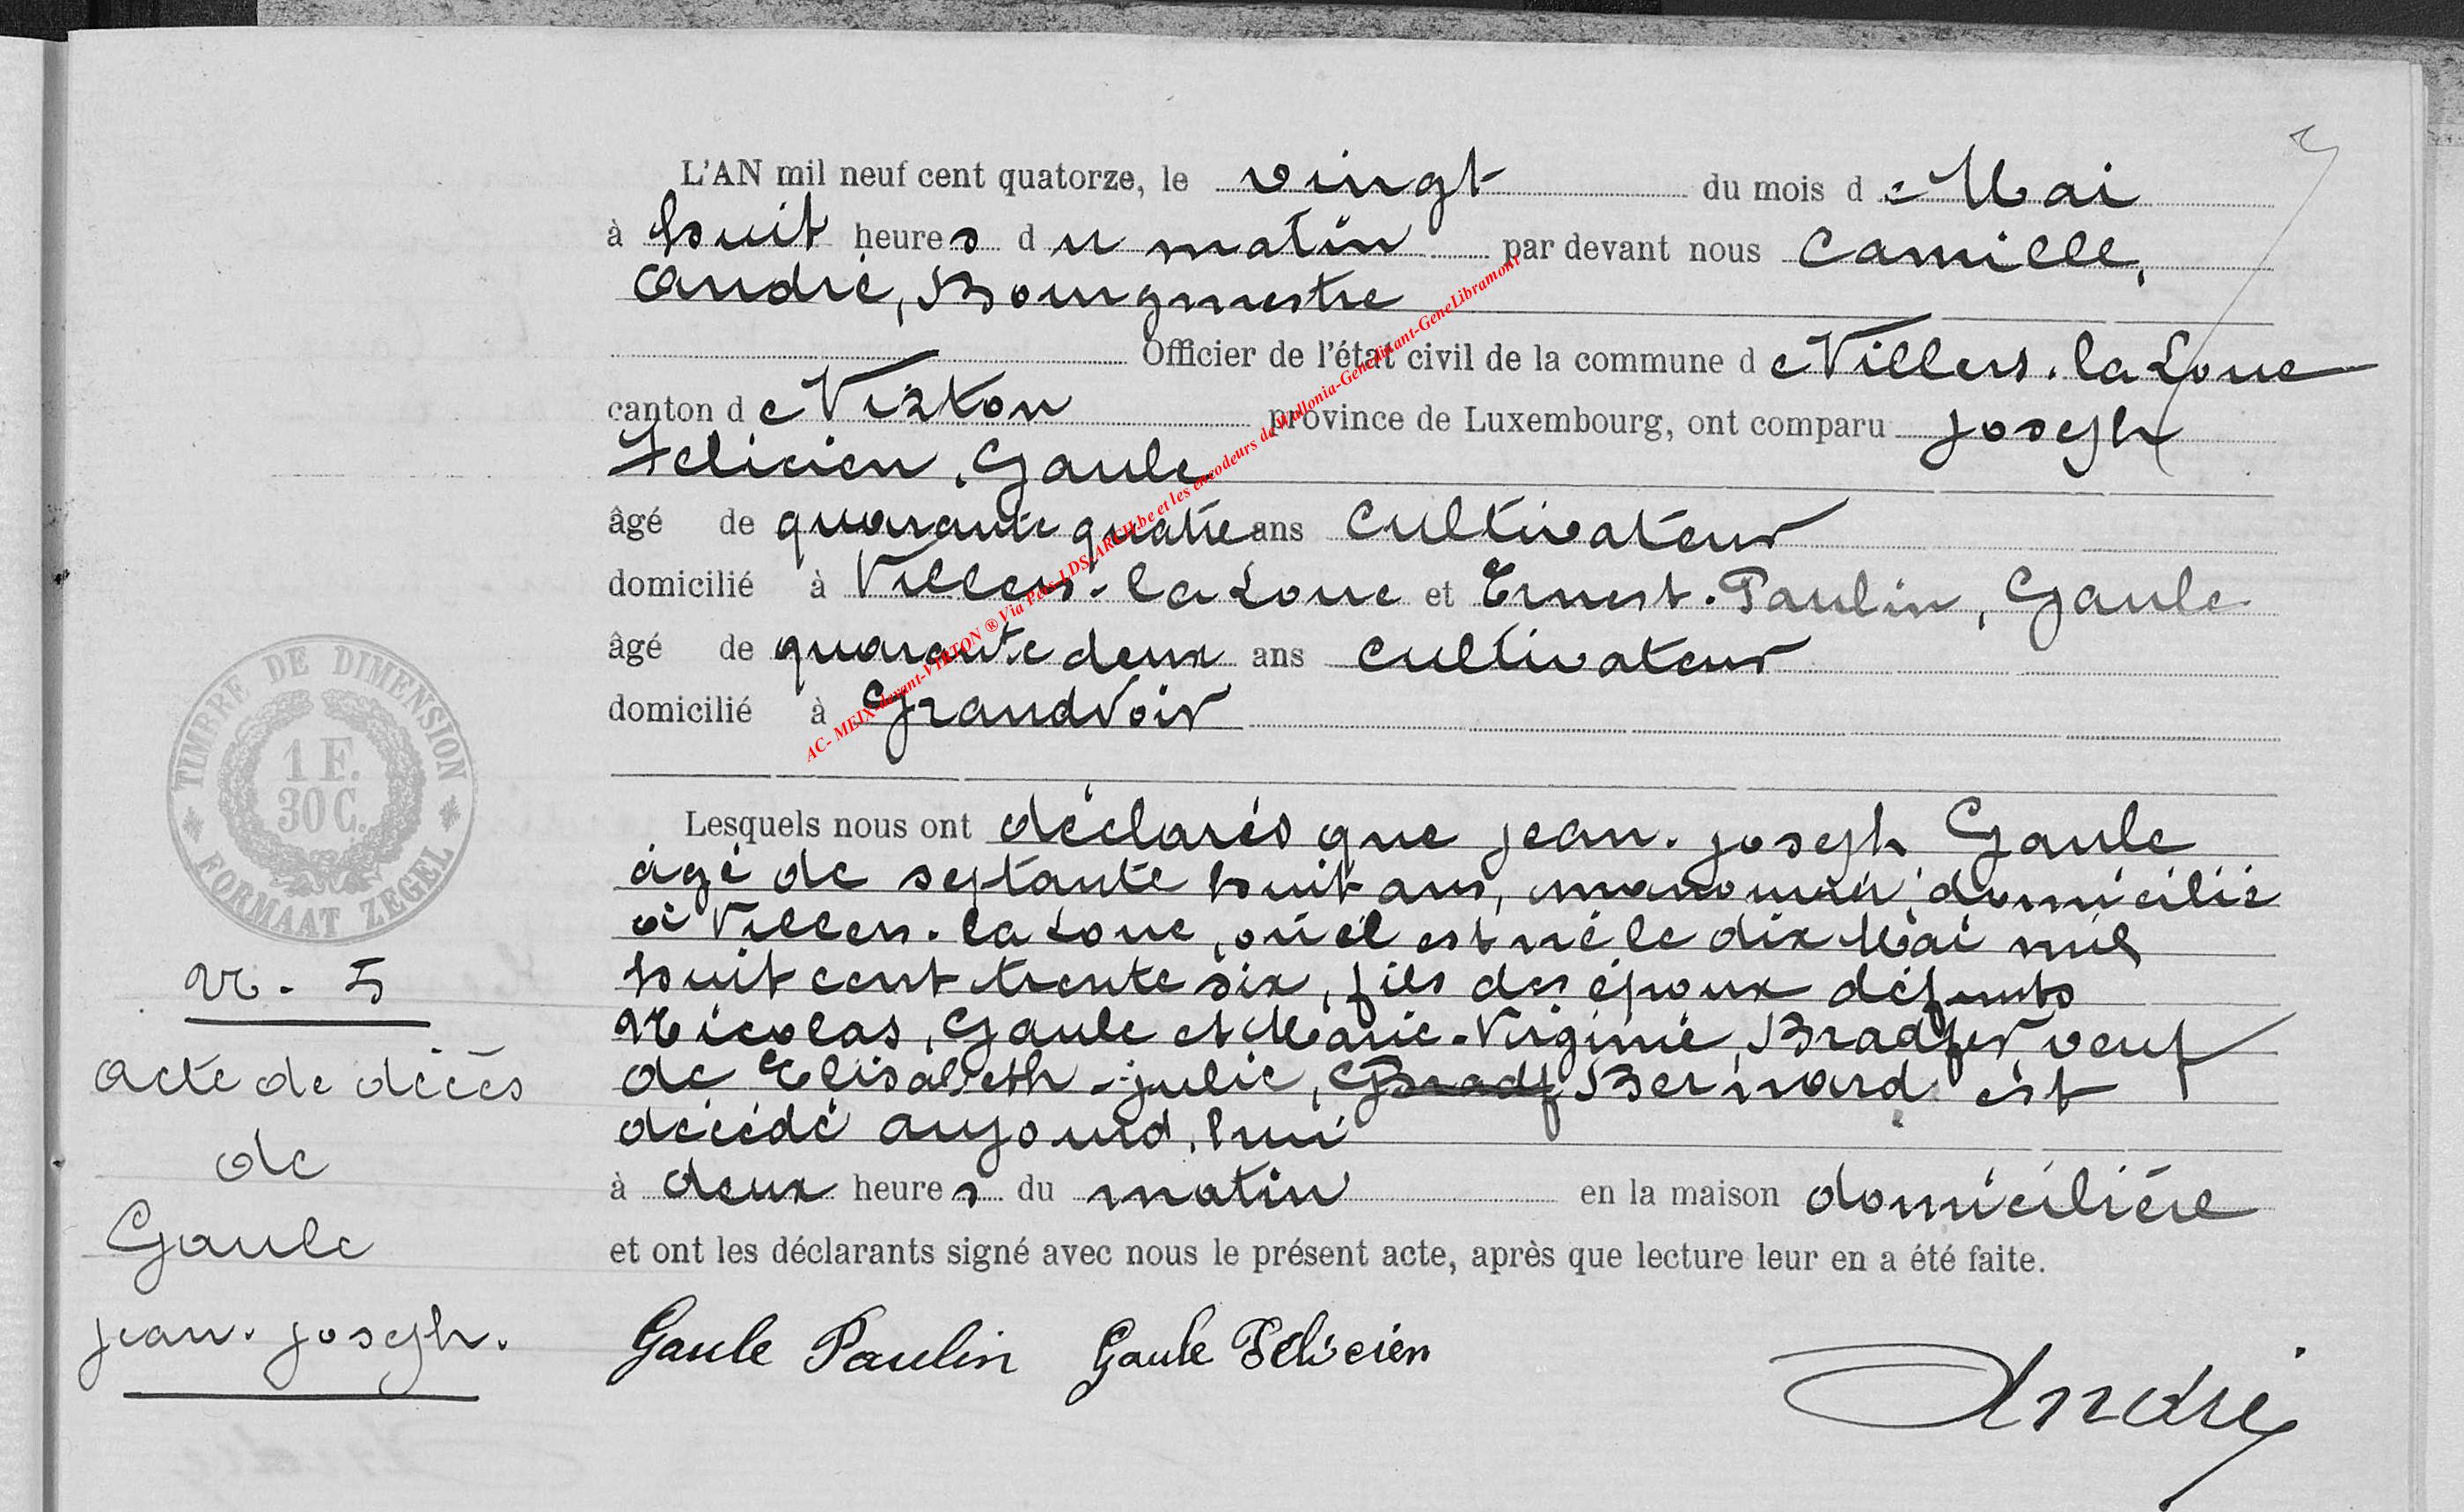 L'AN mil neuf cent quatorze, le vingt du mois de Mai
à huit heures du matin par devant nous Camille,
André, Bourgmestre
Officier de l'état civil de la commune de Villers-la-Loue
canton de Virton province de Luxembourg, ont comparu Joseph
Felicien, Gaule
âgé de quarante quatre ans cultivateur
domicilié à Villers-la-Loue et Ernest-Paulin, Gaule
âgé de quarante deux ans cultivateur
domicilié à Grandvoir
AC- MEIX-devant-VIRTON ® Via Pers-LDS-ARCH.be et les encodeurs de Wallonia-Genedinant-GeneLibramont
TIMBRE DE DIMENSION
1 F.
30 C.
FORMAAT ZEGEL
Lesquels nous ont déclarés que Jean-Joseph Gaule
âgé de septante huit ans, domicilié
à Villers-la-Loue, où il est né le dix Mai mil
huit cent trente six, fils des époux défunts
Nicolas, Gaule et Marie-Virginie, Bradfer veuf
de Elisabeth-Julie, Bernard est
décédé aujourd'hui
à deux heures du matin en la maison domicilière
et ont les déclarants signé avec nous le présent acte, après que lecture leur en a été faite.
N. 5
Acte de décès
de
Gaule
Jean-Joseph.
Gaule Paulin Gaule Félicien
André